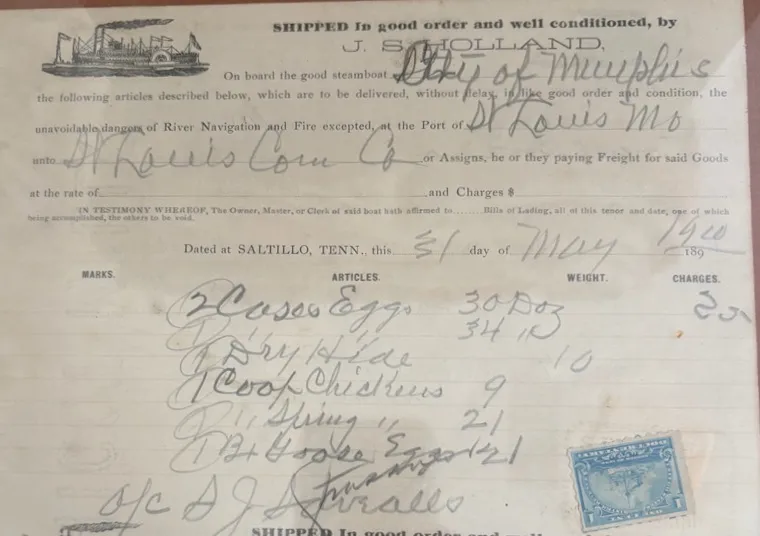 SHIPPED In good order and well conditioned, by
J. S. HOLLAND,
On board the good steamboat City of Memphis
the following articles described below, which are to be delivered, without delay, in like good order and condition, the
unavoidable dangers of River Navigation and Fire excepted, at the Port of St Louis Mo
unto St Louis Com Co or Assigns, he or they paying Freight for said Goods
at the rate of and Charges $
IN TESTIMONY WHEREOF, The Owner, Master, or Clerk of said boat hath affirmed to........Bills of Lading, all of this tenor and date, one of which
being accomplished, the others to be void.
Dated at SALTILLO, TENN., this 31 day of May 1900 189
MARKS. ARTICLES. WEIGHT. CHARGES.
2 Cases Eggs 30 Doz 25
1 " " 34 "
1 Dry Hide 10
1 Coop Chickens 9
1 " Spring " 21
1 Bx Goose Eggs 21
o/c S J
SHIPPED In good order and well